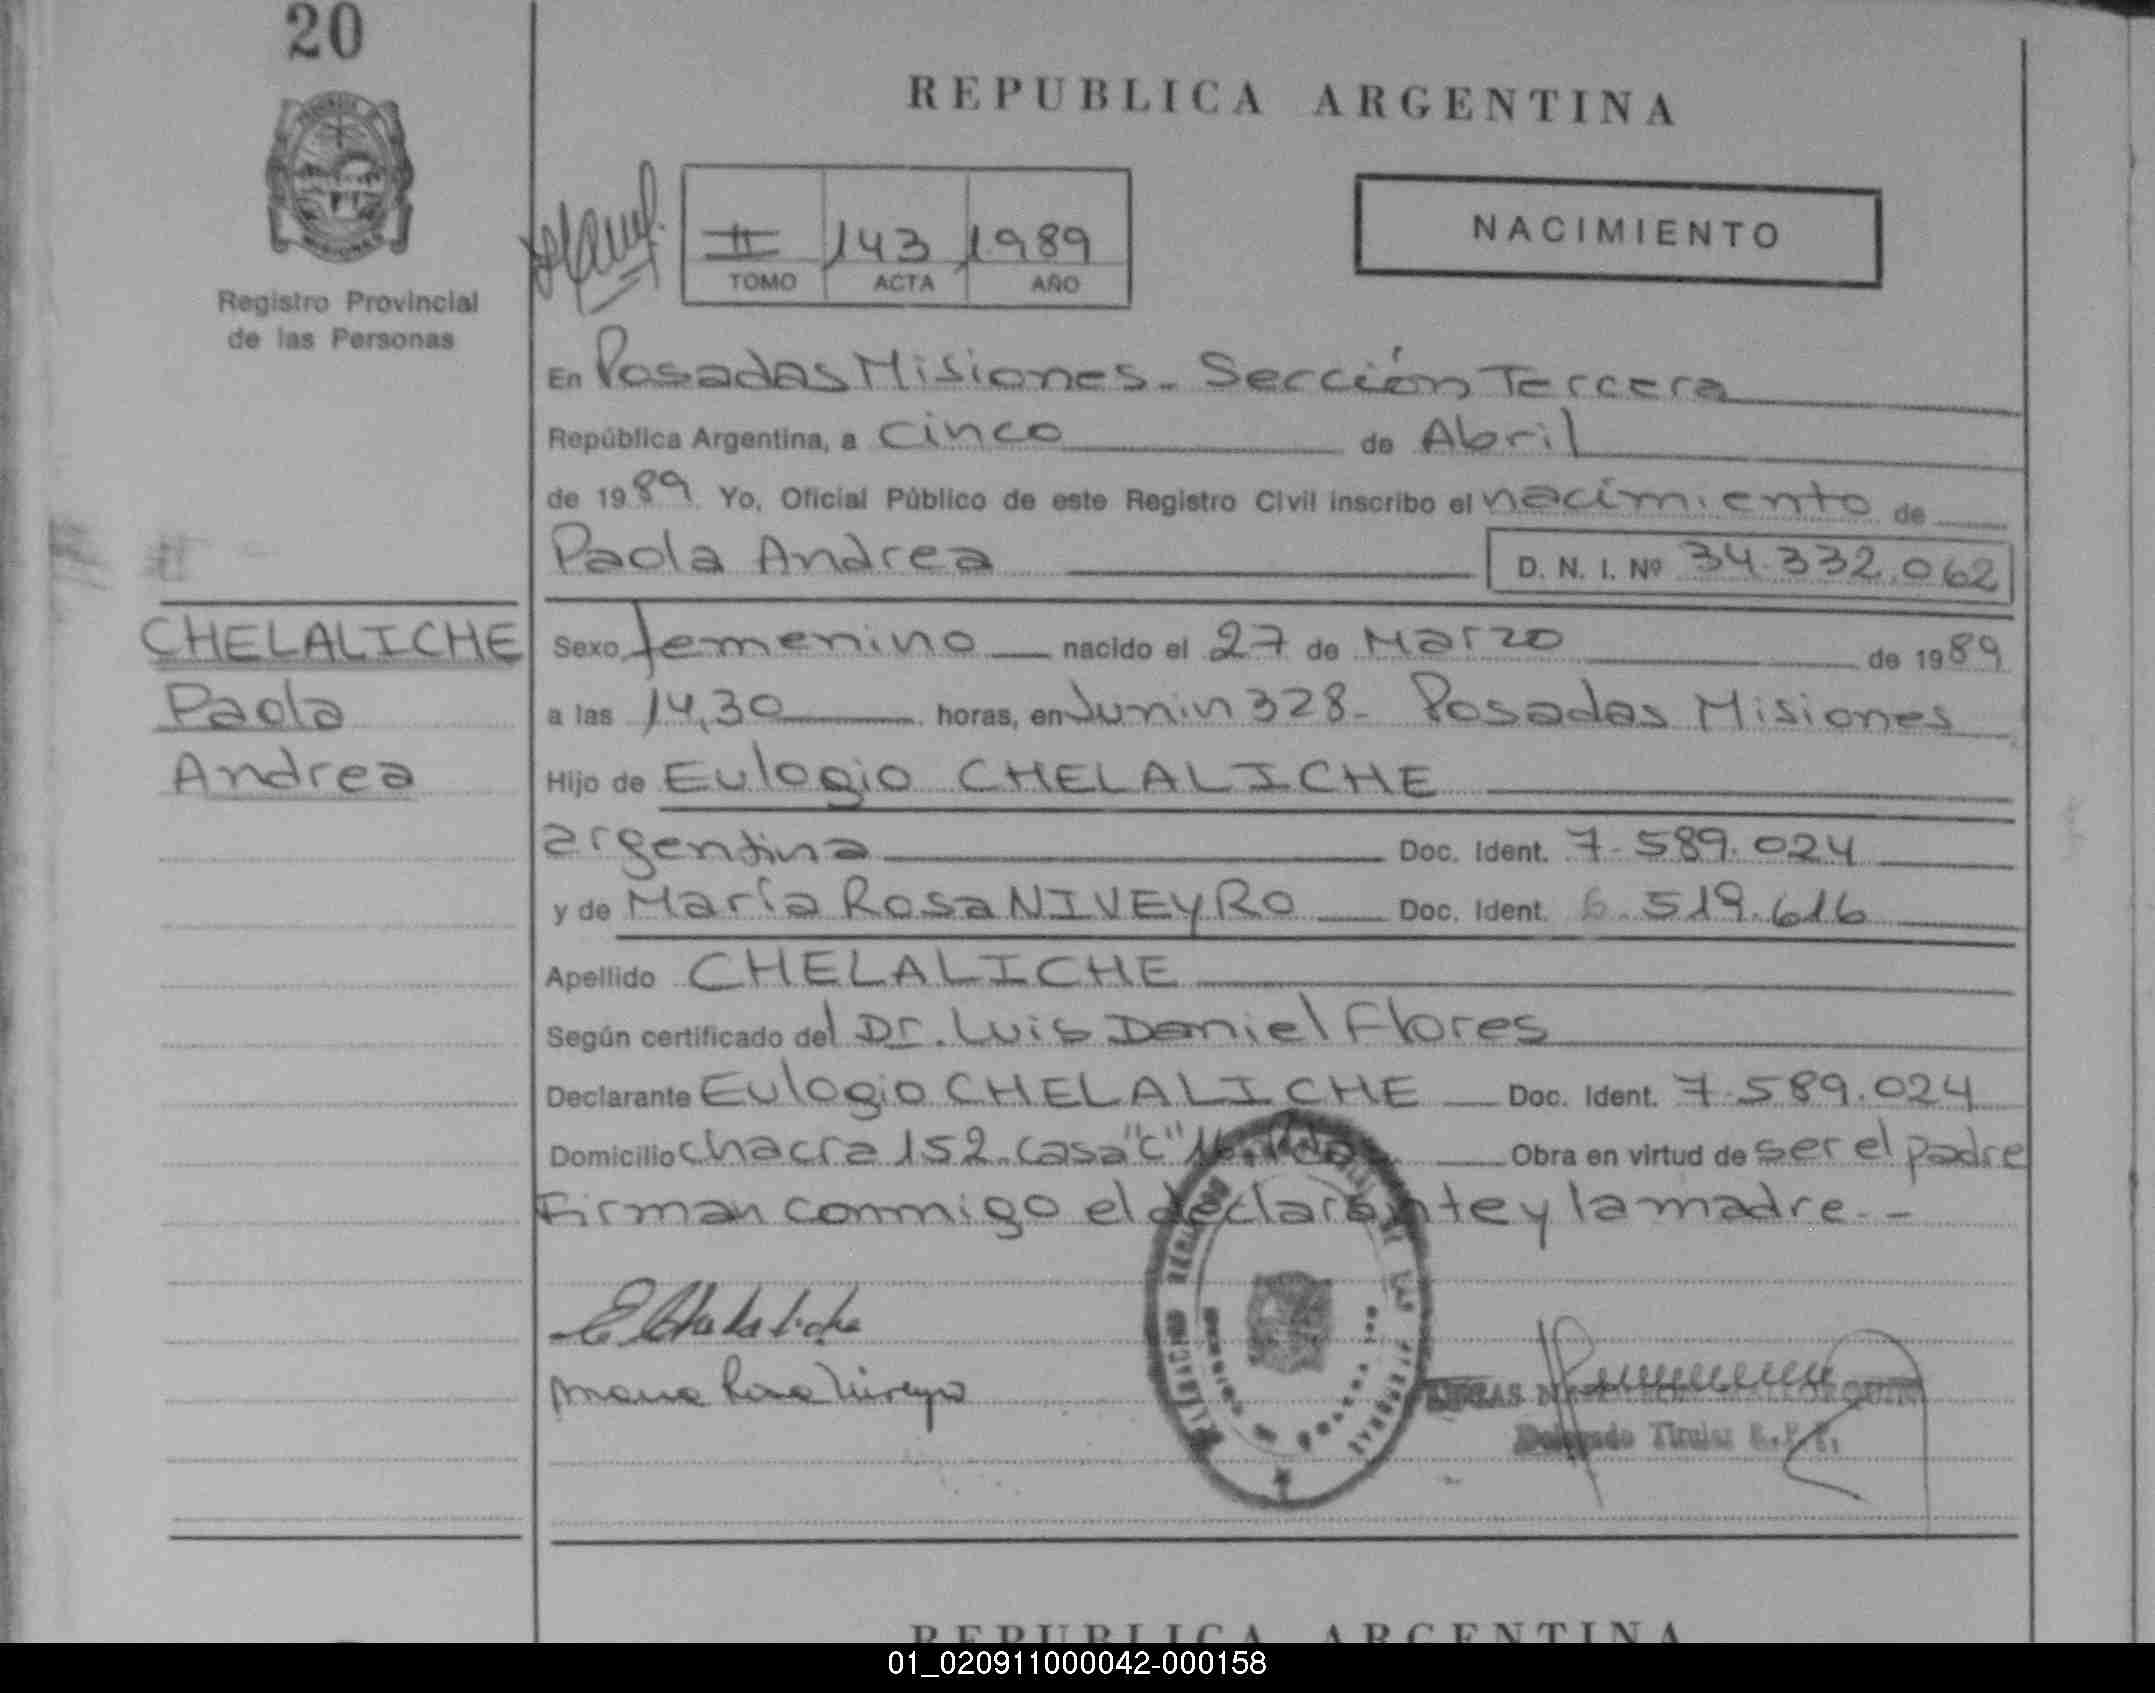 20
REPUBLICA ARGENTINA
II 143 1989
TOMO ACTA AÑO
NACIMIENTO
Registro Provincial
de las Personas
En Posadas Misiones - Sección Tercera
República Argentina, a cinco de Abril
de 1989 Yo, Oficial Público de este Registro Civil inscribo el nacimiento de
Paola Andrea D. N. I. Nº 34.332.062
CHELALICHE
Paola
Andrea
Sexo femenino nacido el 27 de Marzo de 1989
a las 14,30 horas, en Junin 328 - Posadas Misiones
Hijo de Eulogio CHELALICHE
argentina Doc. Ident. 7.589.024
y de María Rosa NIVEYRO Doc. Ident. 6.519.616
Apellido CHELALICHE
Según certificado del Dr. Luis Daniel Flores
Declarante Eulogio CHELALICHE Doc. Ident. 7.589.024
Domicilio chacra 152 casa "C" Obra en virtud de ser el padre
Firman conmigo el declarante y la madre. -
E Chelaliche
Maria Rosa Niveyro
Delegado Titular R.P.P.
REPUBLICA ARGENTINA
01_020911000042-000158